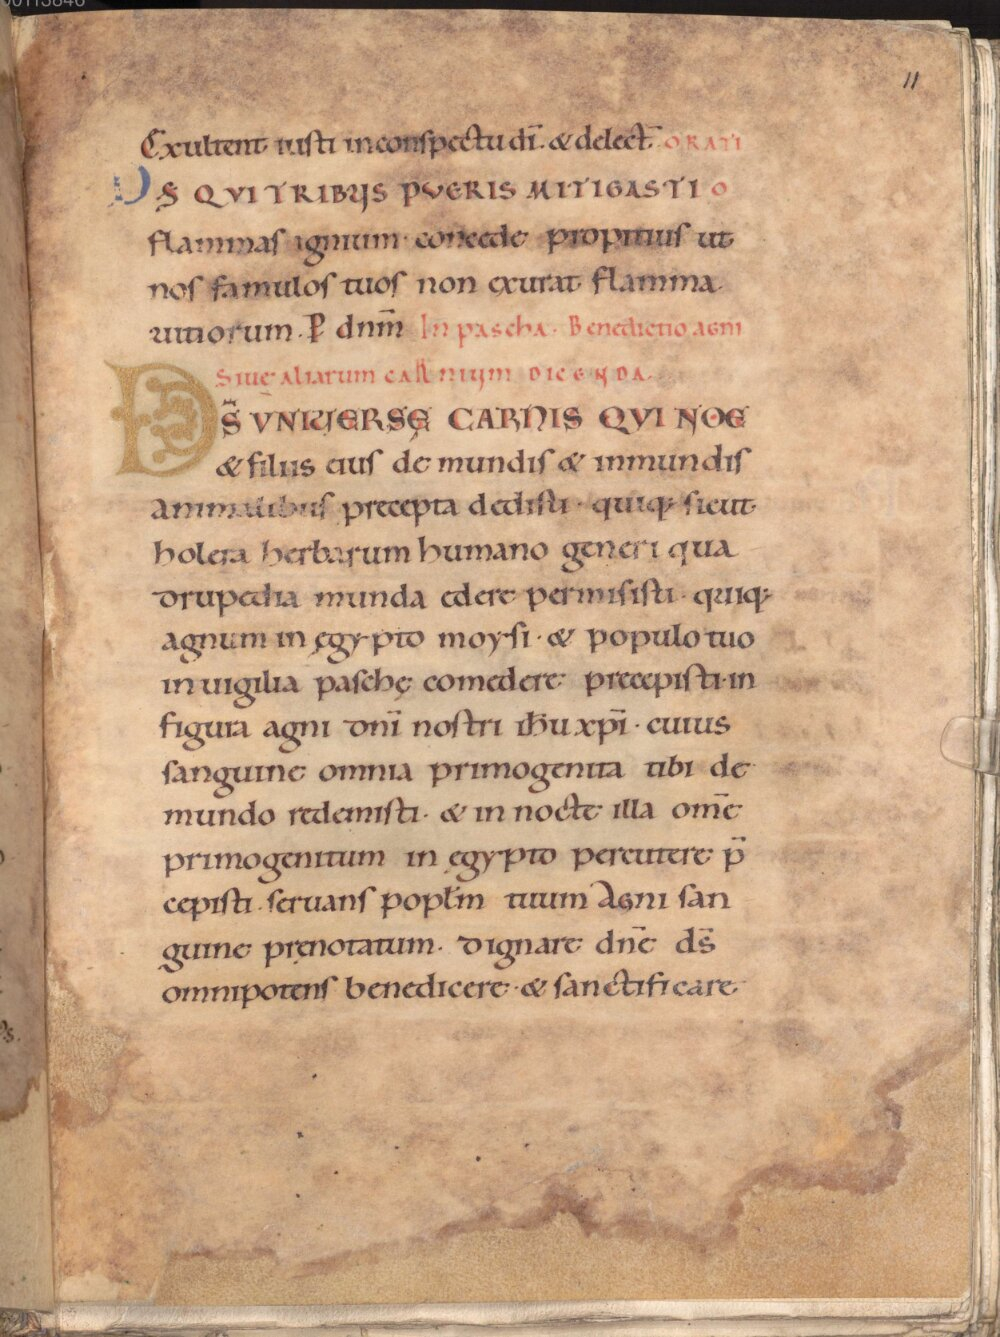 00113846
11
Exultent iusti inconspectu dī. & delect̄ ORATI
DS QVI TRIBVS PVERIS MITIGASTI O
flammas ignium· concede propitius ut
nos famulos tuos non exurat flamma
uitiorum. P dnm̄ In pascha. Benedictio agni
Siue aliarum carnium dicenda.
DS̄ VNIVERSĘ CARNIS QVI NOE
& filiis eius de mundis & inmundis
animalibus precepta dedisti· quiq; sicut
holera herbarum humano generi qua
drupedia munda edere permisisti· quiq;
agnum in ęgypto moysi· & populo tuo
in uigilia paschę comedere precepisti· in
figura agni dn̄i nostri ihū xp̄i· cuius
sanguine omnia primogenita tibi de
mundo redemisti· & in nocte illa om̄e
primogenitum in ęgypto percutere p̄
cepisti. seruans popłm tuum Agni san
guine pręnotatum· dignare dn̄e ds̄
omnipotens benedicere· & sanctificare